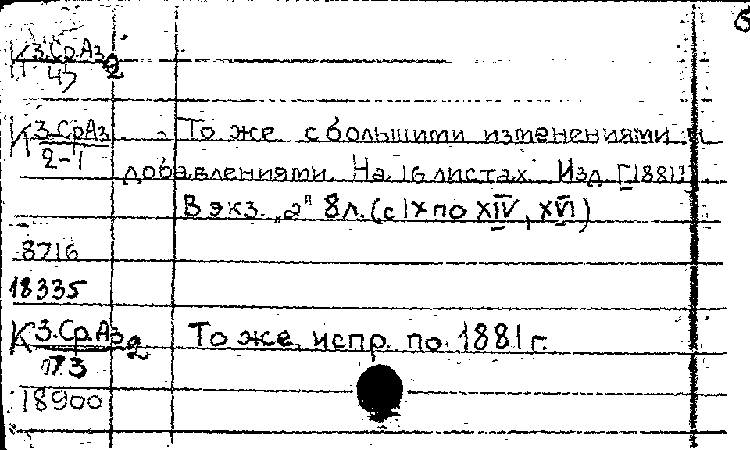 К З.Ср.Аз 2
47
К З.Ср.Аз
2-1
То же с большими изменениями и
добавлениями. На 16 листах. Изд. [1881].
В экз. „а" 8 л. (с IX по XIV, XVI)
8716
18335
К З.Ср.Аз 2
То же, испр. по 1881 г.
18900